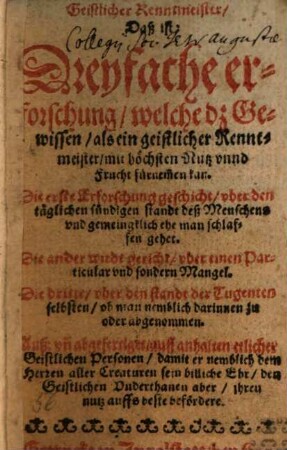 Geistlicher Renntmeister/
Daß ist,
Collegij Soc. Jesu Augustæ
Dreyfache er-
forschung/ welche dz Ge-
wissen/ als ein geistlicher Rennt-
meister/ mit höchsten Nutz vnnd
Frucht fürnemen kan.
Die erste Erforschung geschicht/ vber den
täglichen sündigen standt deß Menschens
vnd gemeingklich ehe man schlaf-
fen gehet.
Die ander wirdt gericht/ vber einen Par-
ticular vnd sondern Mangel.
Die dritte/ vber den standt der Tugenten
selbsten/ ob man nemblich darinnen zu
oder abgenommen.
auff anhalten etlicher
Geistlichen Personen/ damit er nemblich dem
Herzen aller Creaturen sein billiche Ehr/ den
Geistlichen Vnderthanen aber/ ihren
nutz auffs beste befördere.